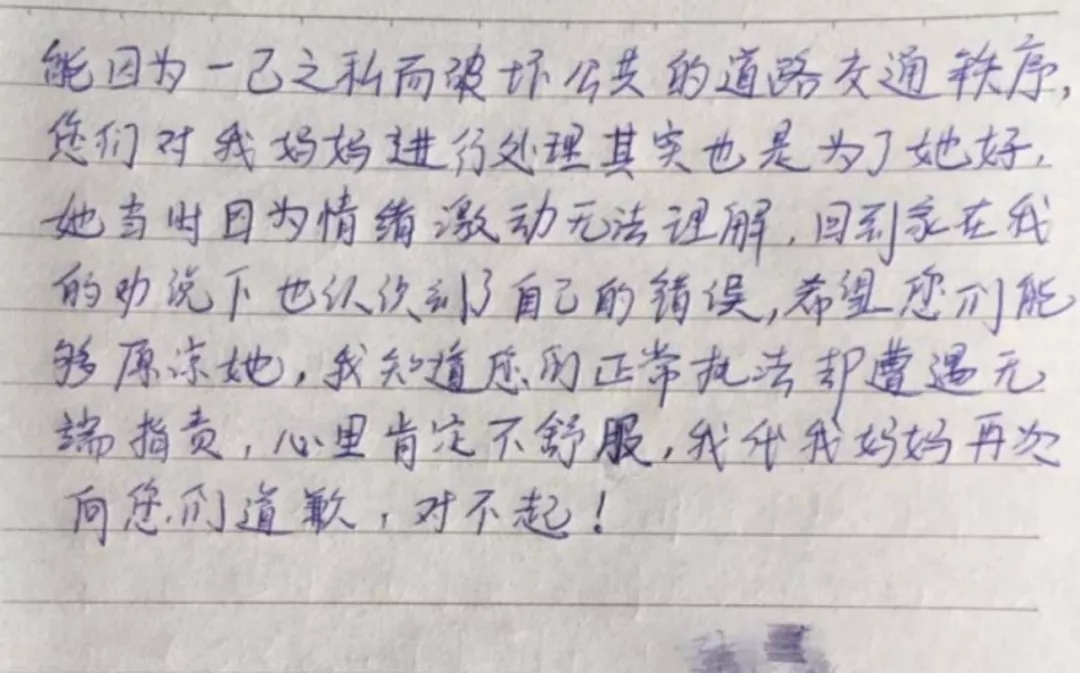 能因为一己之私而破坏公共的道路交通秩序,
您们对我妈妈进行处理其实也是为了她好.
她当时因为情绪激动无法理解,回到家在我
的劝说下也认识到了自己的错误,希望您们能
够原凉她,我知道您的正常执法却遭遇无
端指责,心里肯定不舒服,我代我妈妈再次
向您们道歉,对不起!